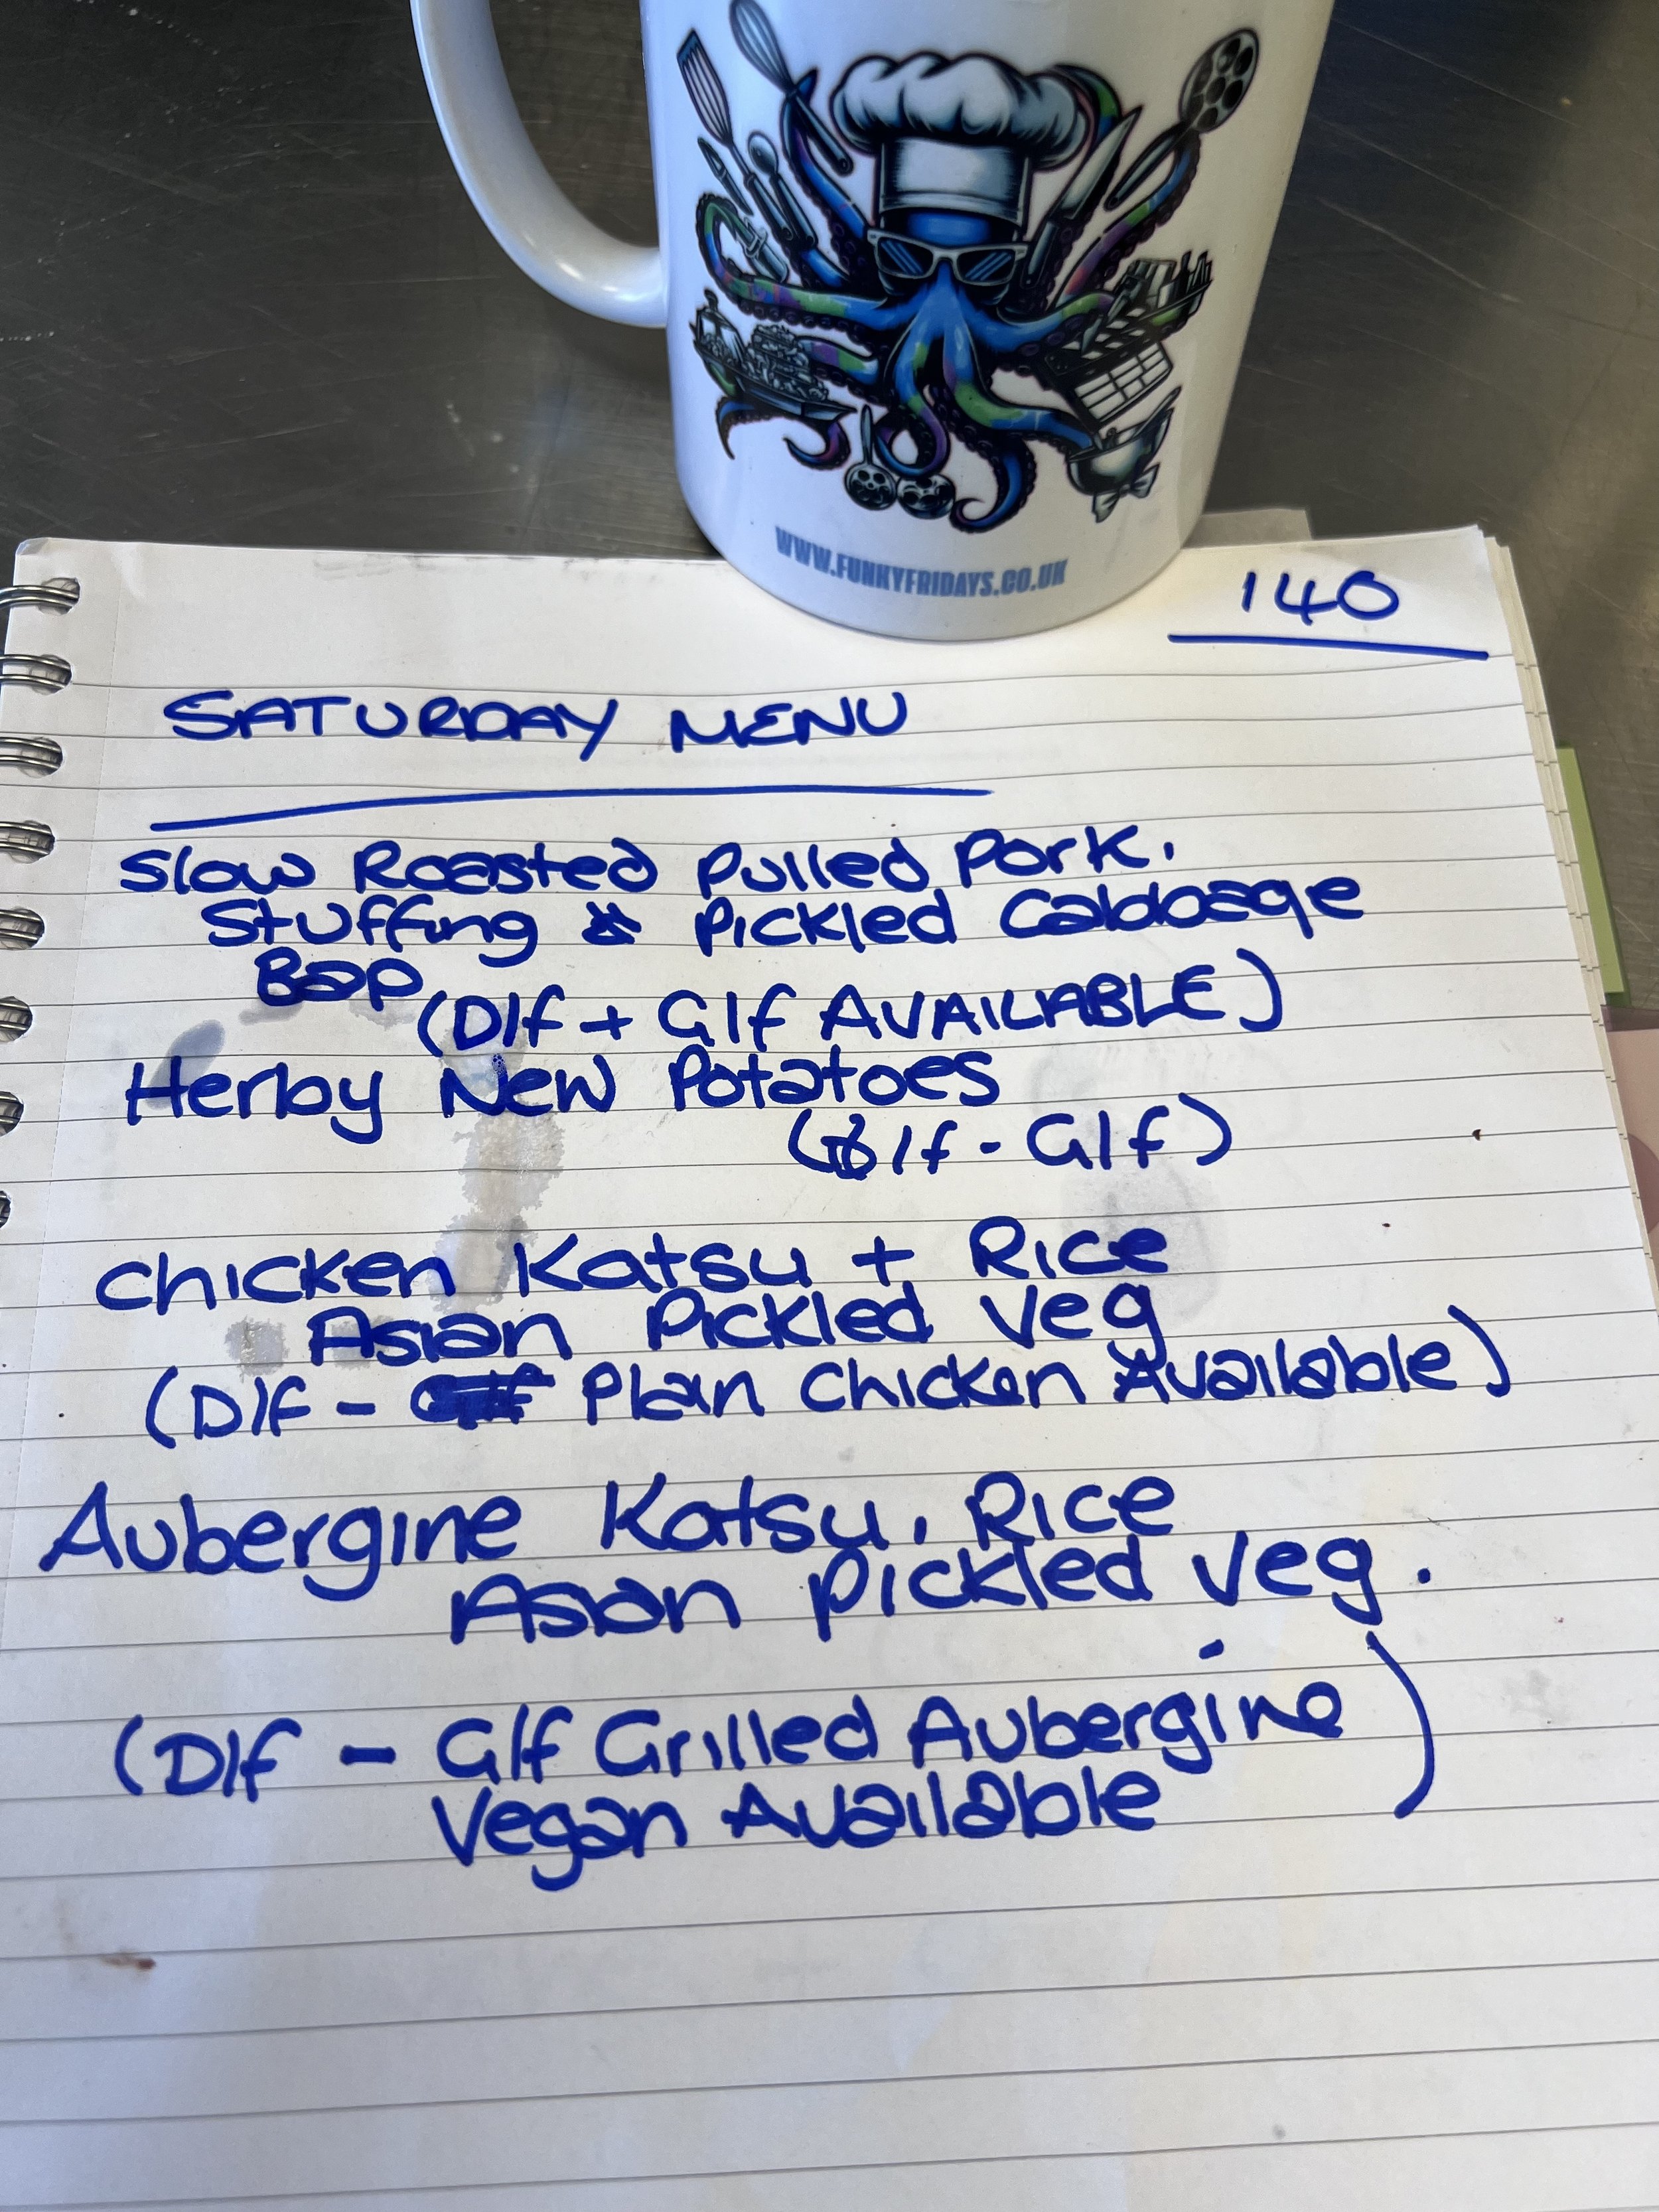 WWW.FUNKYFRIDAYS.CO.UK
140
SATURDAY MENU
Slow Roasted Pulled Pork.
Stuffing & Pickled Cabbage
Bap
(D/f + G/f AVAILABLE)
Herby New Potatoes
(D/f - G/f)
Chicken Katsu + Rice
Asian Pickled Veg
(D/f - Plain Chicken Available)
Aubergine Katsu, Rice
Asian Pickled Veg.
(D/f - G/f Grilled Aubergine
Vegan Available)